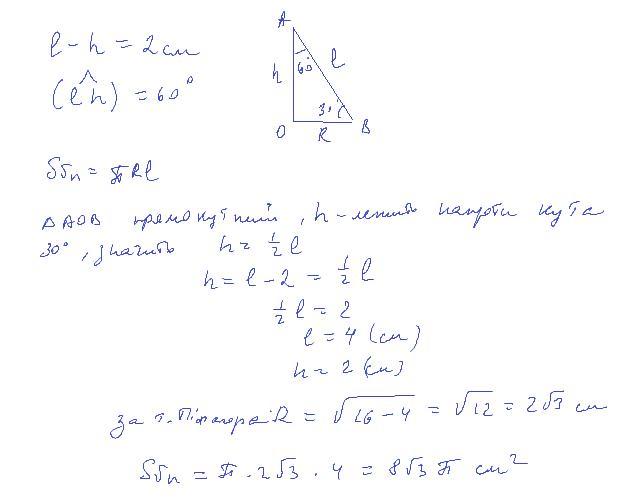 l - h = 2 см
(l^h) = 60°
A
h
60°
l
30°
O
R
B
Sбп = πRl
ΔAOB прямокутний, h - лежить напроти кута
30°, значить h = 1/2 l
h = l - 2 = 1/2 l
1/2 l = 2
l = 4 (см)
h = 2 (см)
за т. Піфагора R = √(16 - 4) = √12 = 2√3 см
Sбп = π · 2√3 · 4 = 8√3 π см²